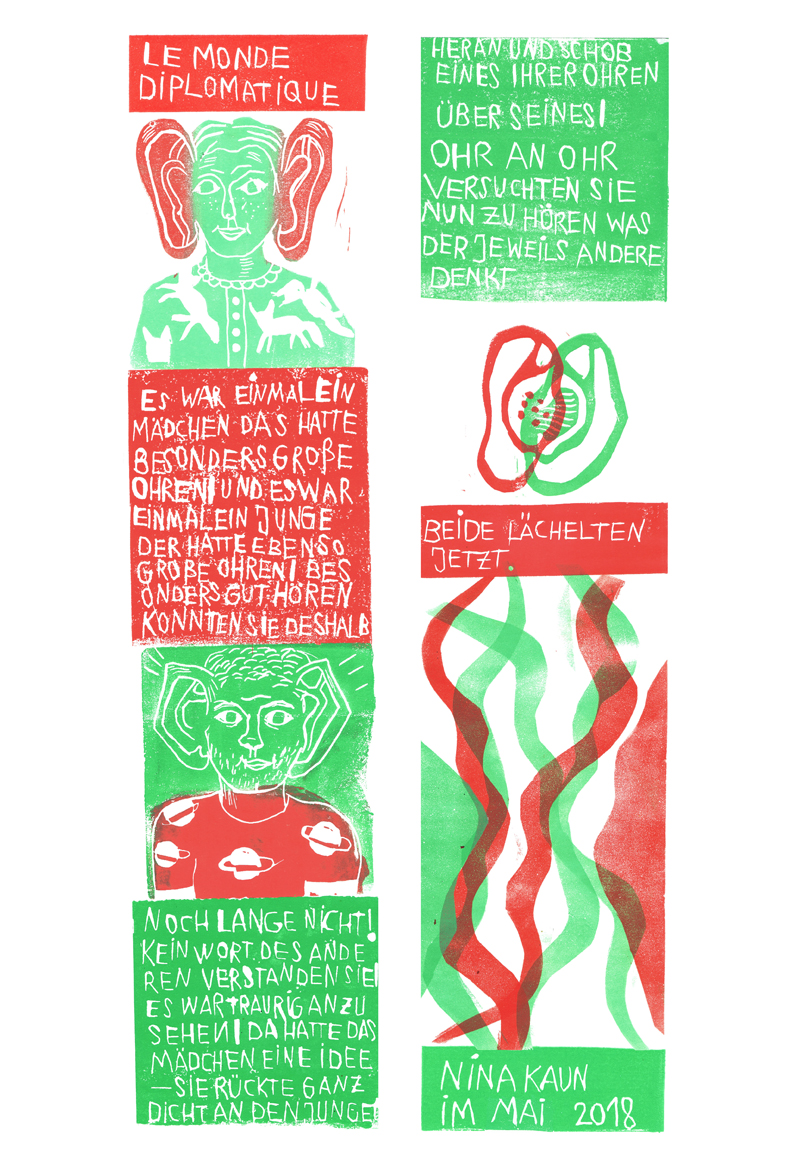 LE MONDE
DIPLOMATIQUE
ES WAR EINMAL EIN
MÄDCHEN DAS HATTE
BESONDERS GROßE
OHREN! UND ES WAR
EINMAL EIN JUNGE
DER HATTE EBENSO
GROßE OHREN! BES
ONDERS GUT HÖREN
KONNTEN SIE DESHALB
NOCH LANGE NICHT!
KEIN WORT DES ANDE
REN VERSTANDEN SIE!
ES WAR TRAURIG ANZU
SEHEN! DA HATTE DAS
MÄDCHEN EINE IDEE
—SIE RÜCKTE GANZ
DICHT AN DEN JUNGE
HERAN UND SCHOB
EINES IHRER OHREN
ÜBER SEINES!
OHR AN OHR
VERSUCHTEN SIE
NUN ZU HÖREN WAS
DER JEWEILS ANDERE
DENKT
BEIDE LÄCHELTEN
JETZT.
NINA KAUN
IM MAI 2018